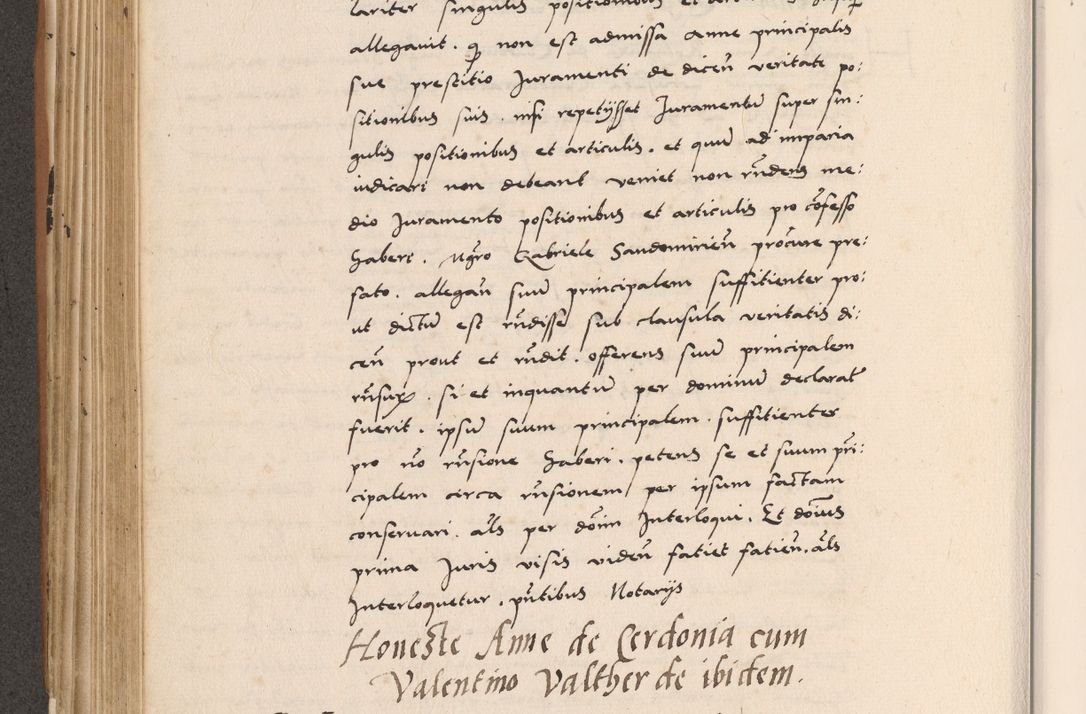 lariter singulis positionibus et
allegauit . q non est admissa Anne principalis
sue prestitio Juramenti de dicen̄ veritate po:
sitionibus suis . nisi repetysset Juramentū super sin:
gulis positionibus et articulis . et quum ad imparia
iudicari non debeant veniet non rn̄dens me:
dio Juramento positionibus et articulis pro cōfesso
haberi . Mgro Gabriele Sandomirien̄ procure pre:
fato . allegan̄ suū principalem suffitienter pro:
ut dictū est rn̄disse sub clausula veritatis di:
cen̄ prout et rn̄dit . offerens suū principalem
rn̄surꝝ . si et inquantū per dominū declarat̄
fuerit . ipsū suum principalem . suffitienter
pro nō rn̄sione haberi . petens se et suum prī:
cipalem circa rn̄sionem per ipsum factam
conseruari . als per dōm̄ Interloqui . Et dōnus
prima Juris visis viden̄ fatiet fatien̄ . als
Interloquetur . pn̄tibus Notarijs
Honeste Anne de Cerdonia cum
Valentino Valther de ibidem .